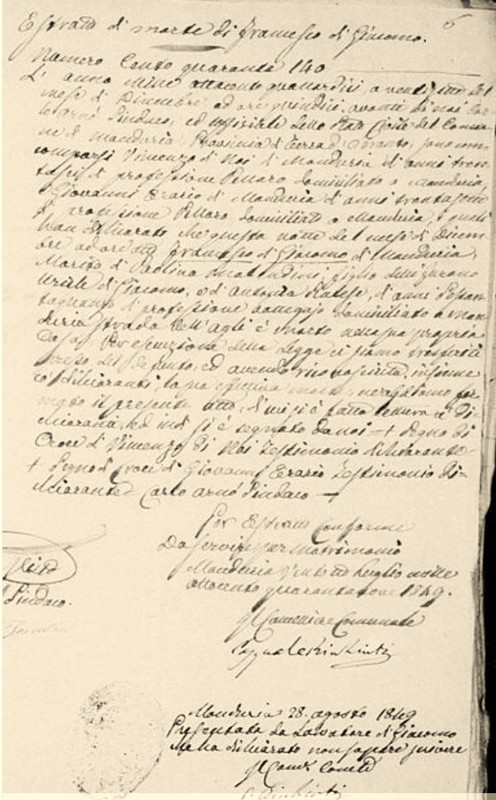 6
Estratto di morte di Francesco di Giacomo.
Numero Cento quaranta 140
L'anno mille ottocento quarandici, a venti otto del
mese di Dicembre, ad ore quindici avanti di noi Car
lo Arnò Sindaco, ed uffiziale dello Stato Civile del Comu
ne di Manduria Provincia di Terra d'Otranto, sono com
comparsi Vincenzo di Noi di Manduria di anni tren
tasei di professione Pellaro domiciliato a Manduria,
Giovanni Erario di Manduria di anni trentasette
di professione Pellaro domiciliato a Manduria, i quali
han dichiarato che questa notte del mese di Dicem
bre ad ore otto Francesco di Giacomo di Manduria,
Marito di figlio dell'
di Giacomo, e di Antonia d'anni sessan
taquattro di professione domiciliato a Man
duria strada dell'Agli è morto nella sua propria
Casa. Per esecuzione della Legge ci siamo trasferiti
presso del defunto, ed avendo riconosciuta, insieme
co' dichiaranti la sua effettiva morte, ne abbiamo for
mato il presente atto, di cui si è fatta lettura a' Di
chiaranti, ed indi si è segnato da noi + Segno di
Croce di Vincenzo di Noi Testimonio dichiarante
+ Segno di Croce di Giovanni Erario Testimonio Di
chiarante Carlo Arnò Sindaco
Per Estratto Conforme
Da servire per matrimonio
Manduria Luglio mille
ottocento quarantanove 1849.
Il Cancelliere Comunale
Sindaco.
Manduria 28. agosto 1849
Presentata da Salvatore di Giacomo
che ha dichiarato non sapere scrivere
Il Canc.